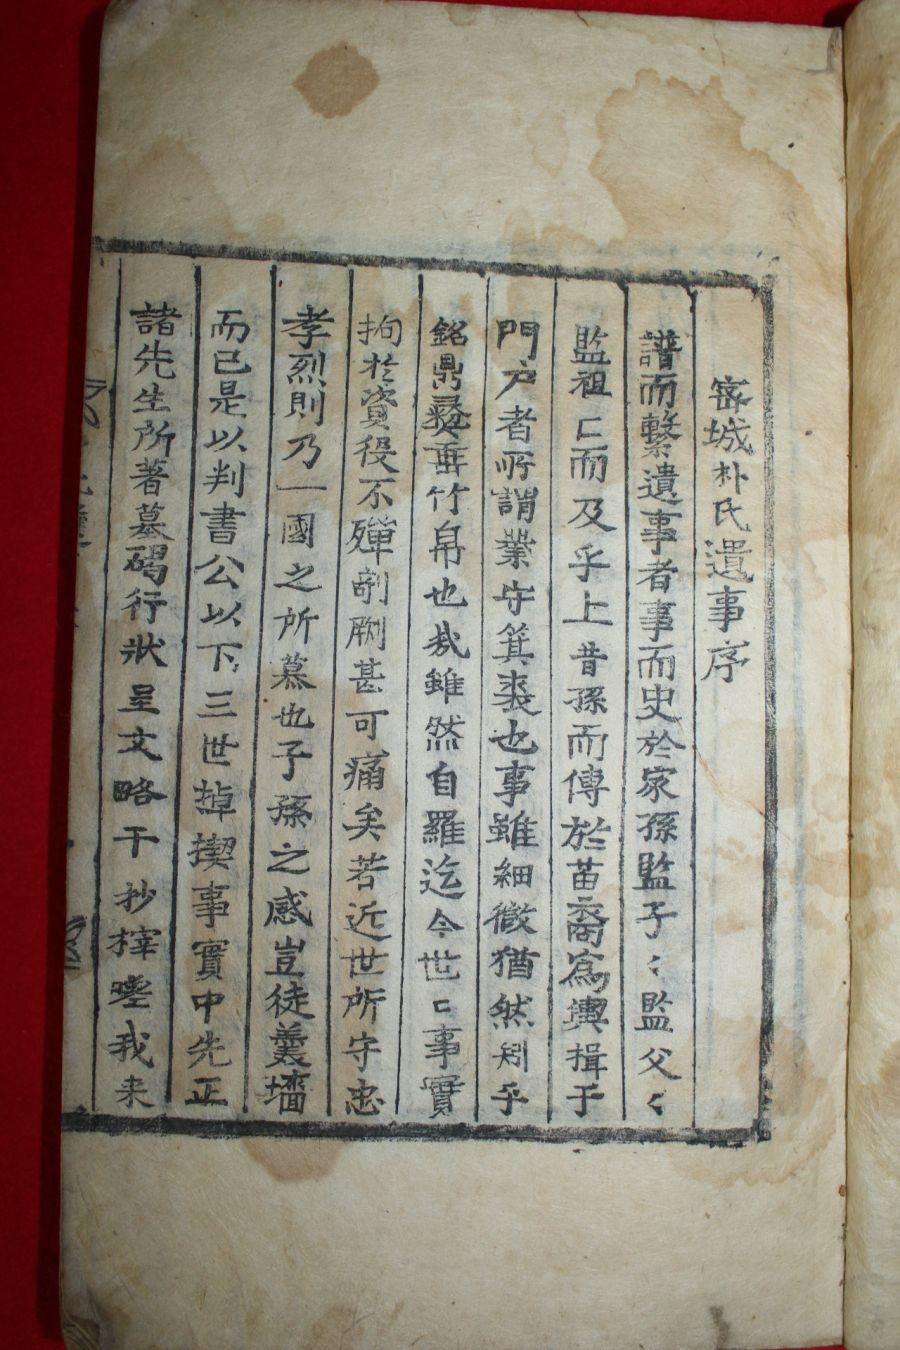 密城朴氏遺事序
譜而繫遺事者事而史於家孫監子〻監父〻
監祖〻而及乎上昔孫而傳於苗裔為輿揖于
門户者所謂業守箕裘也事雖細微猶然矧乎
銘鼎彝垂竹帛也哉雖然自羅迄今世〻事實
拘於資役不殫剞劂甚可痛矣若近世所守忠
孝烈則乃一國之所慕也子孫之感豈徒羹墻
而已是以判書公以下三世掉楔事實中先正
諸先生所著墓碣行狀呈文略干抄擇噫我来